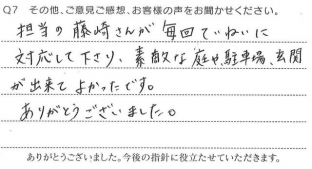 Q7 その他、ご意見ご感想、お客様の声をお聞かせください。
担当の藤崎さんが毎回ていねいに
対応して下さり、素敵な庭や、駐車場、玄関
が出来てよかったです。
ありがとうございました。
ありがとうございました。今後の指針に役立たせていただきます。